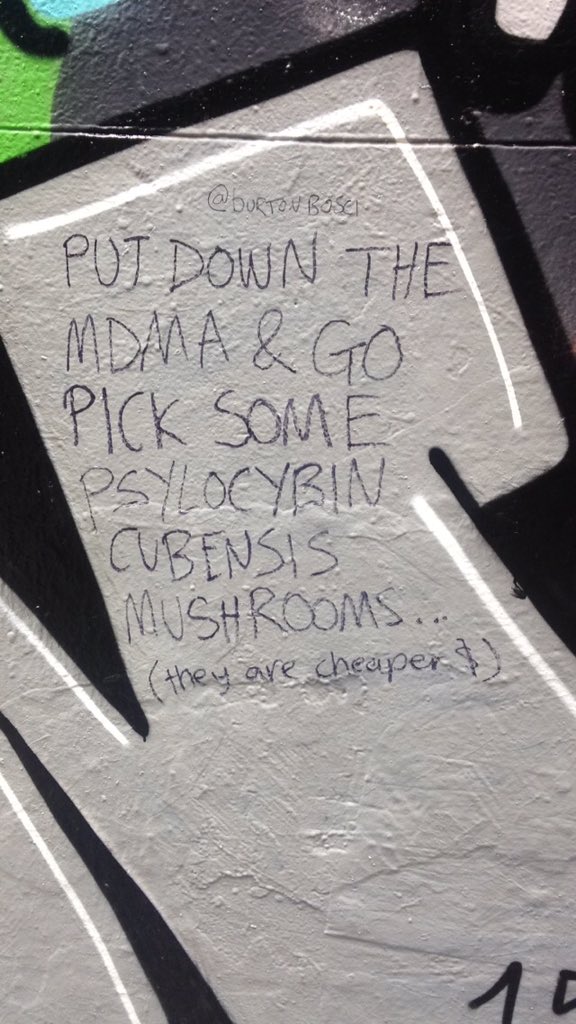 @BURTONBOSCI
PUT DOWN THE
MDMA & GO
PICK SOME
PSYLOCYBIN
CUBENSIS
MUSHROOMS...
(they are cheaper $)